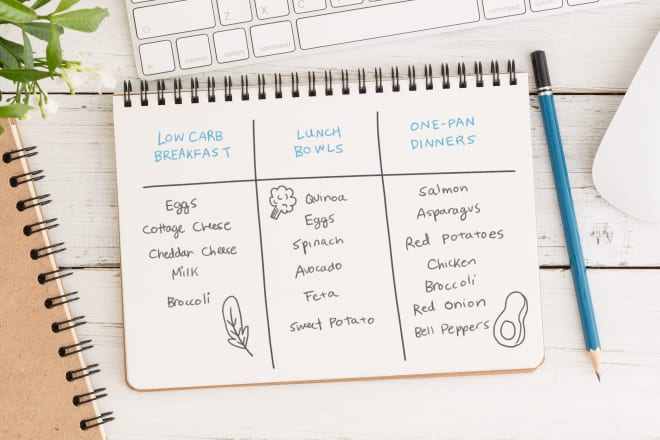 Z
X
C
control
option
command
command
option
LOW CARB
BREAKFAST
Eggs
Cottage Cheese
Cheddar Cheese
Milk
Broccoli
LUNCH
BOWLS
Quinoa
Eggs
Spinach
Avocado
Feta
Sweet Potato
ONE-PAN
DINNERS
Salmon
Asparagus
Red Potatoes
Chicken
Broccoli
Red Onion
Bell Peppers